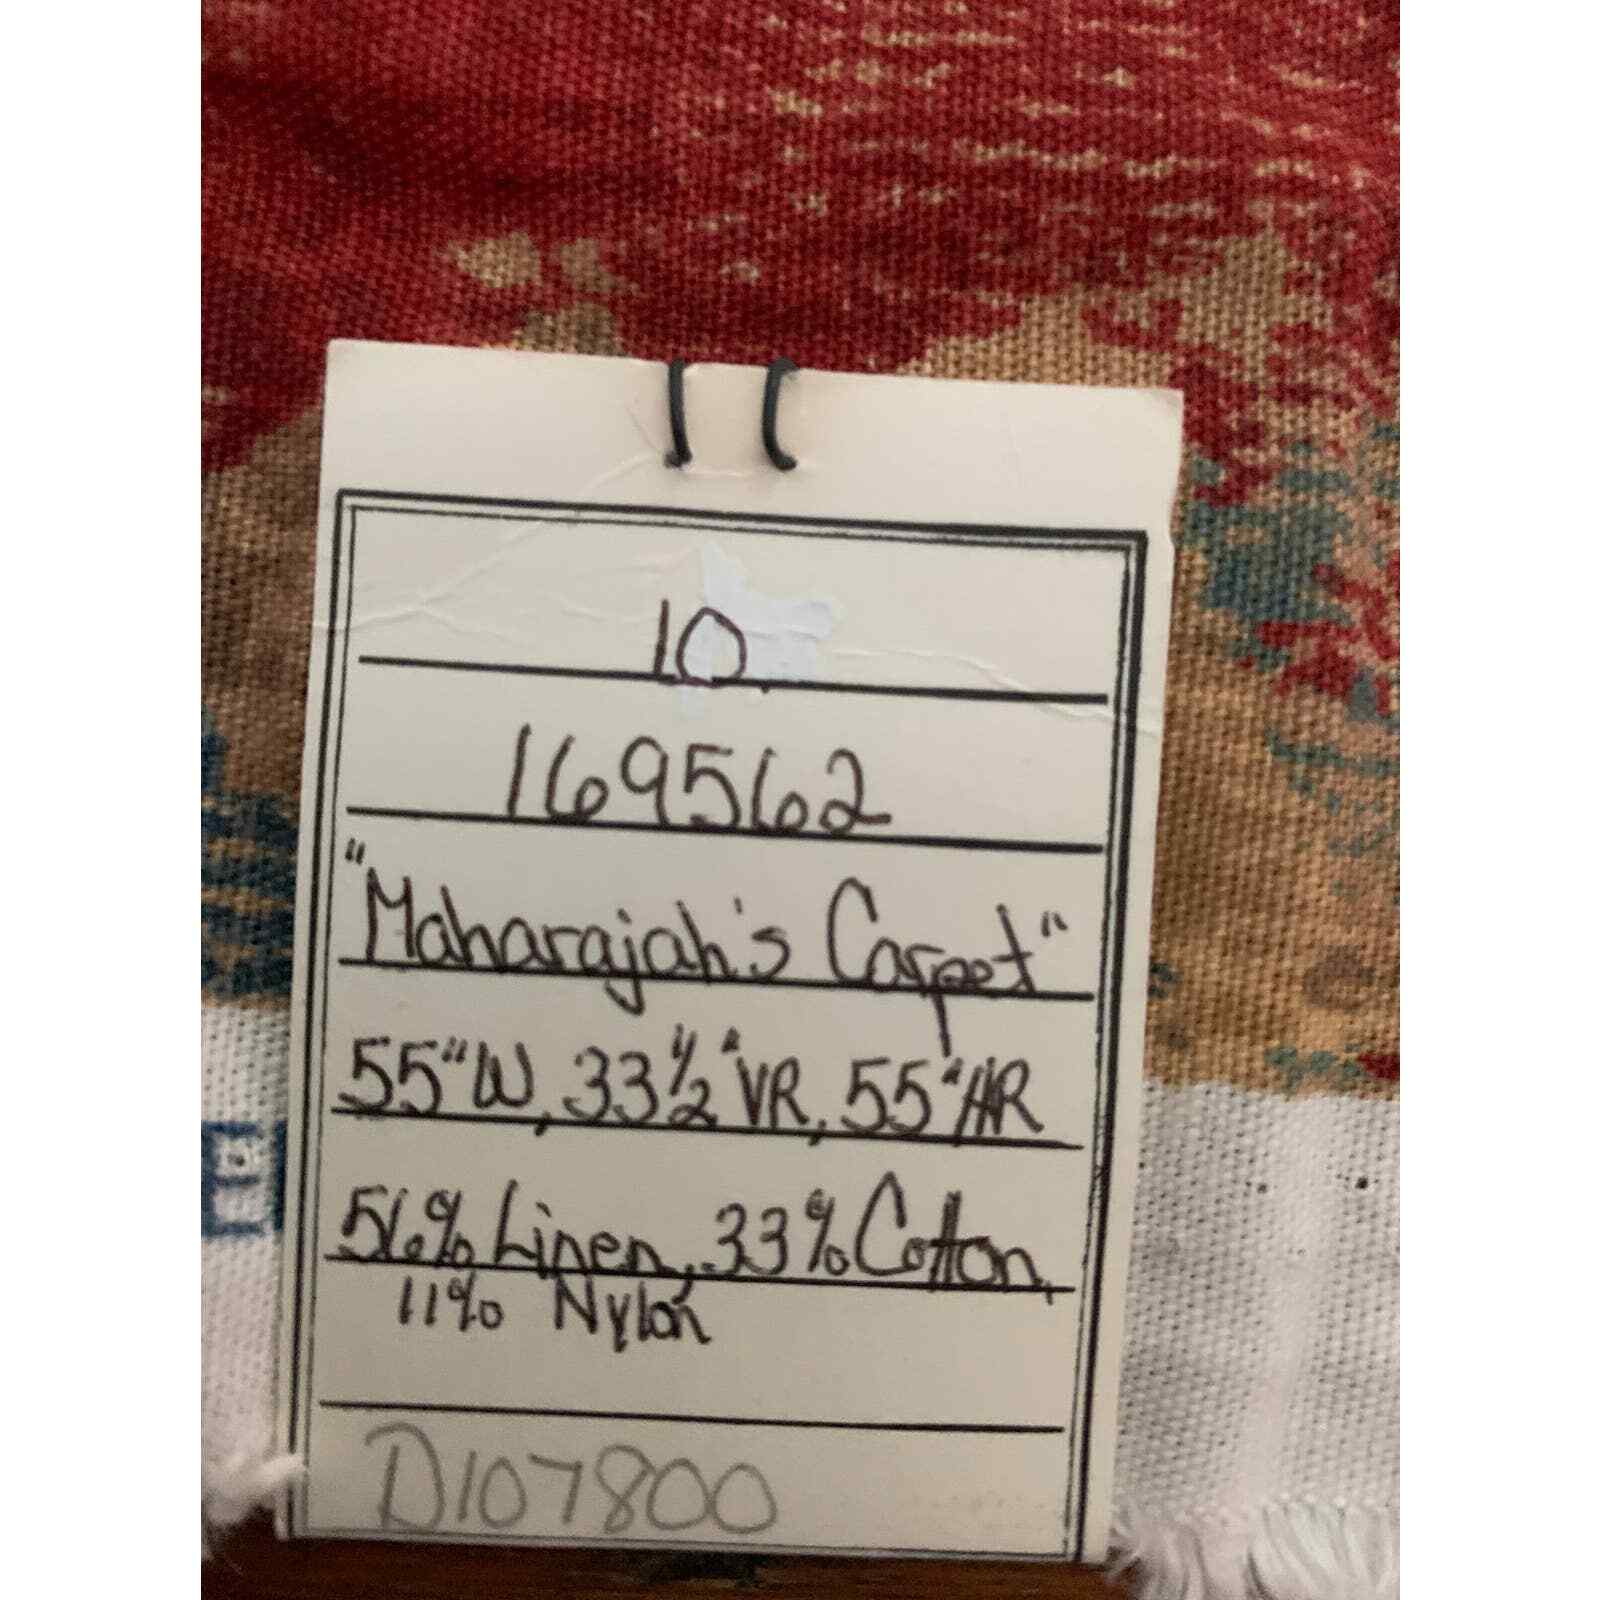 10
169562
"Maharajah's Carpet"
55"W, 33½"VR, 55"HR
56% Linen, 33% Cotton,
11% Nylon
D107800